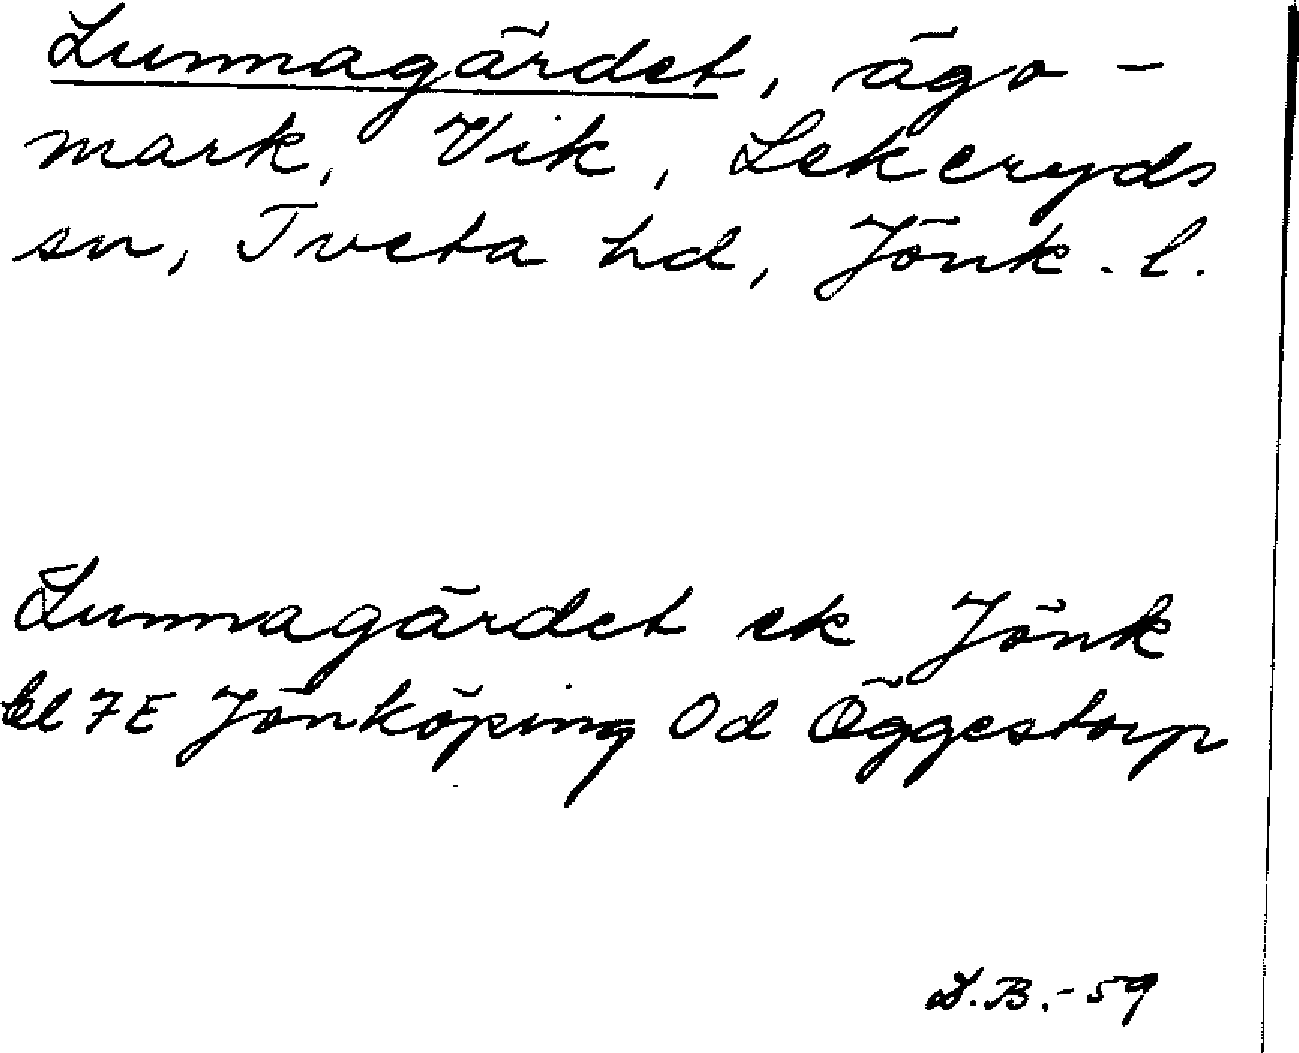 Lunnagärdet, ägo-
mark, Vik, Lekeryds
sn, Tveta hd, Jönk. l.
Lunnagärdet ek Jönk
bl 7E Jönköping Od Öggestorp
D.B.-59